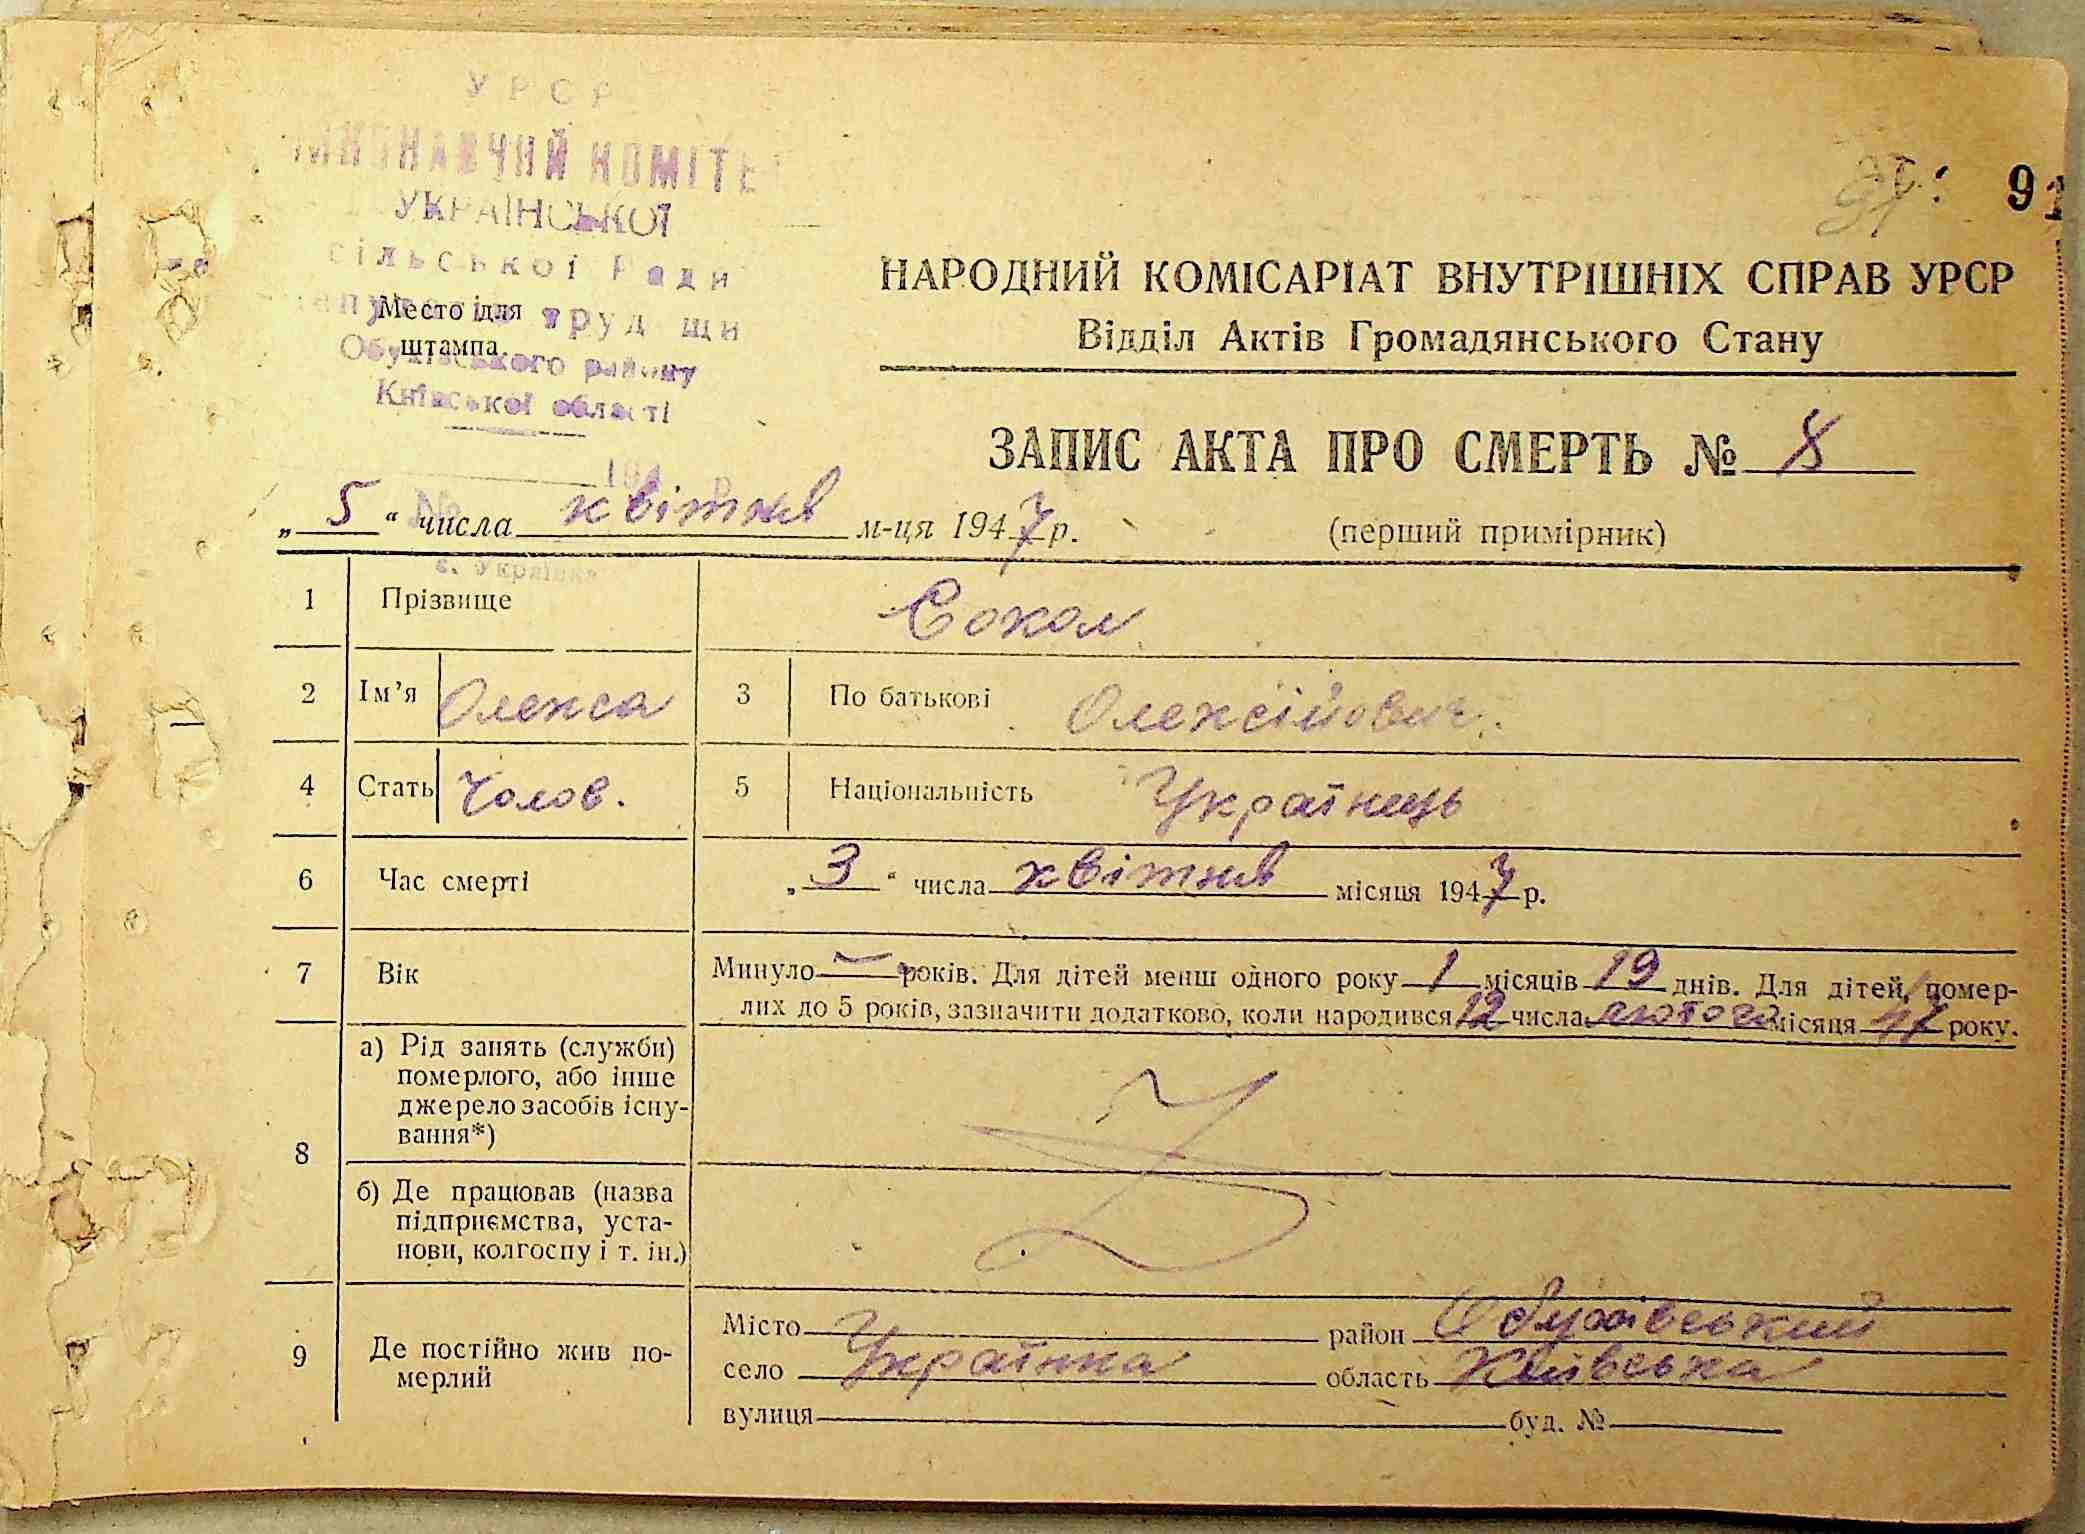 УРСР
ВИКОНАВЧИЙ КОМІТЕТ
УКРАЇНСЬКОЇ
сільської Ради
депутатів трудящих
Обухівського району
Київської області
194 р.
№
с. Українка
Место для
штампа
91
НАРОДНИЙ КОМІСАРІАТ ВНУТРІШНІХ СПРАВ УРСР
Відділ Актів Громадянського Стану
ЗАПИС АКТА ПРО СМЕРТЬ № 8
„ 5 “ числа квітня м-ця 1947 р. (перший примірник)
1 Прізвище Сокол
2 Ім’я Олекса 3 По батькові Олексійович.
4 Стать Чолов. 5 Національність Українець
6 Час смерті „ 3 “ числа квітня місяця 1947 р.
7 Вік Минуло — років. Для дітей менш одного року 1 місяців 19 днів. Для дітей, помер-
лих до 5 років, зазначити додатково, коли народився 12 числа лютого місяця 47 року.
8 а) Рід занять (служби)
померлого, або інше
джерело засобів існу-
вання*)
б) Де працював (назва
підприємства, уста-
нови, колгоспу і т. ін.)
9 Де постійно жив по-
мерлий
Місто район Обухівський
село Українка область Київська
вулиця буд. №